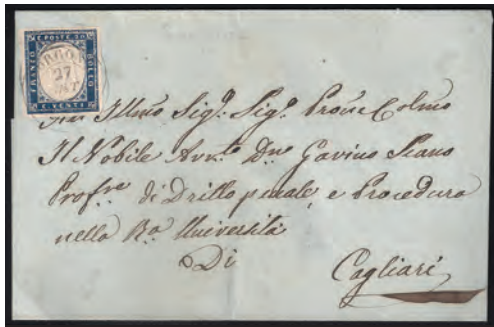 C. POSTE 20
FRANCO
BOLLO
C. VENTI
27
All' Illmo Sigr. Sigr. Prone Colmo
Il Nobile Avvto. Dn. Gavino Scano
Profre. di Dritto penale e Procedura
nella Ra. Università
Di
Cagliari